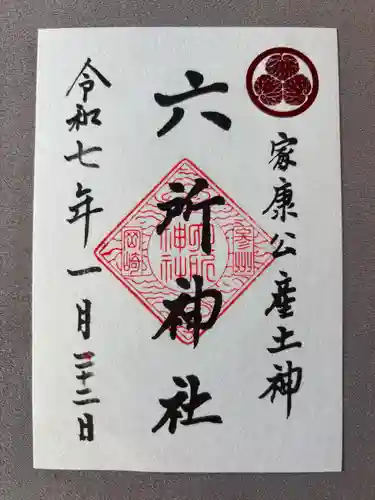 家康公産土神
六所神社
参州
六所神社
岡崎
令和七年一月二十二日